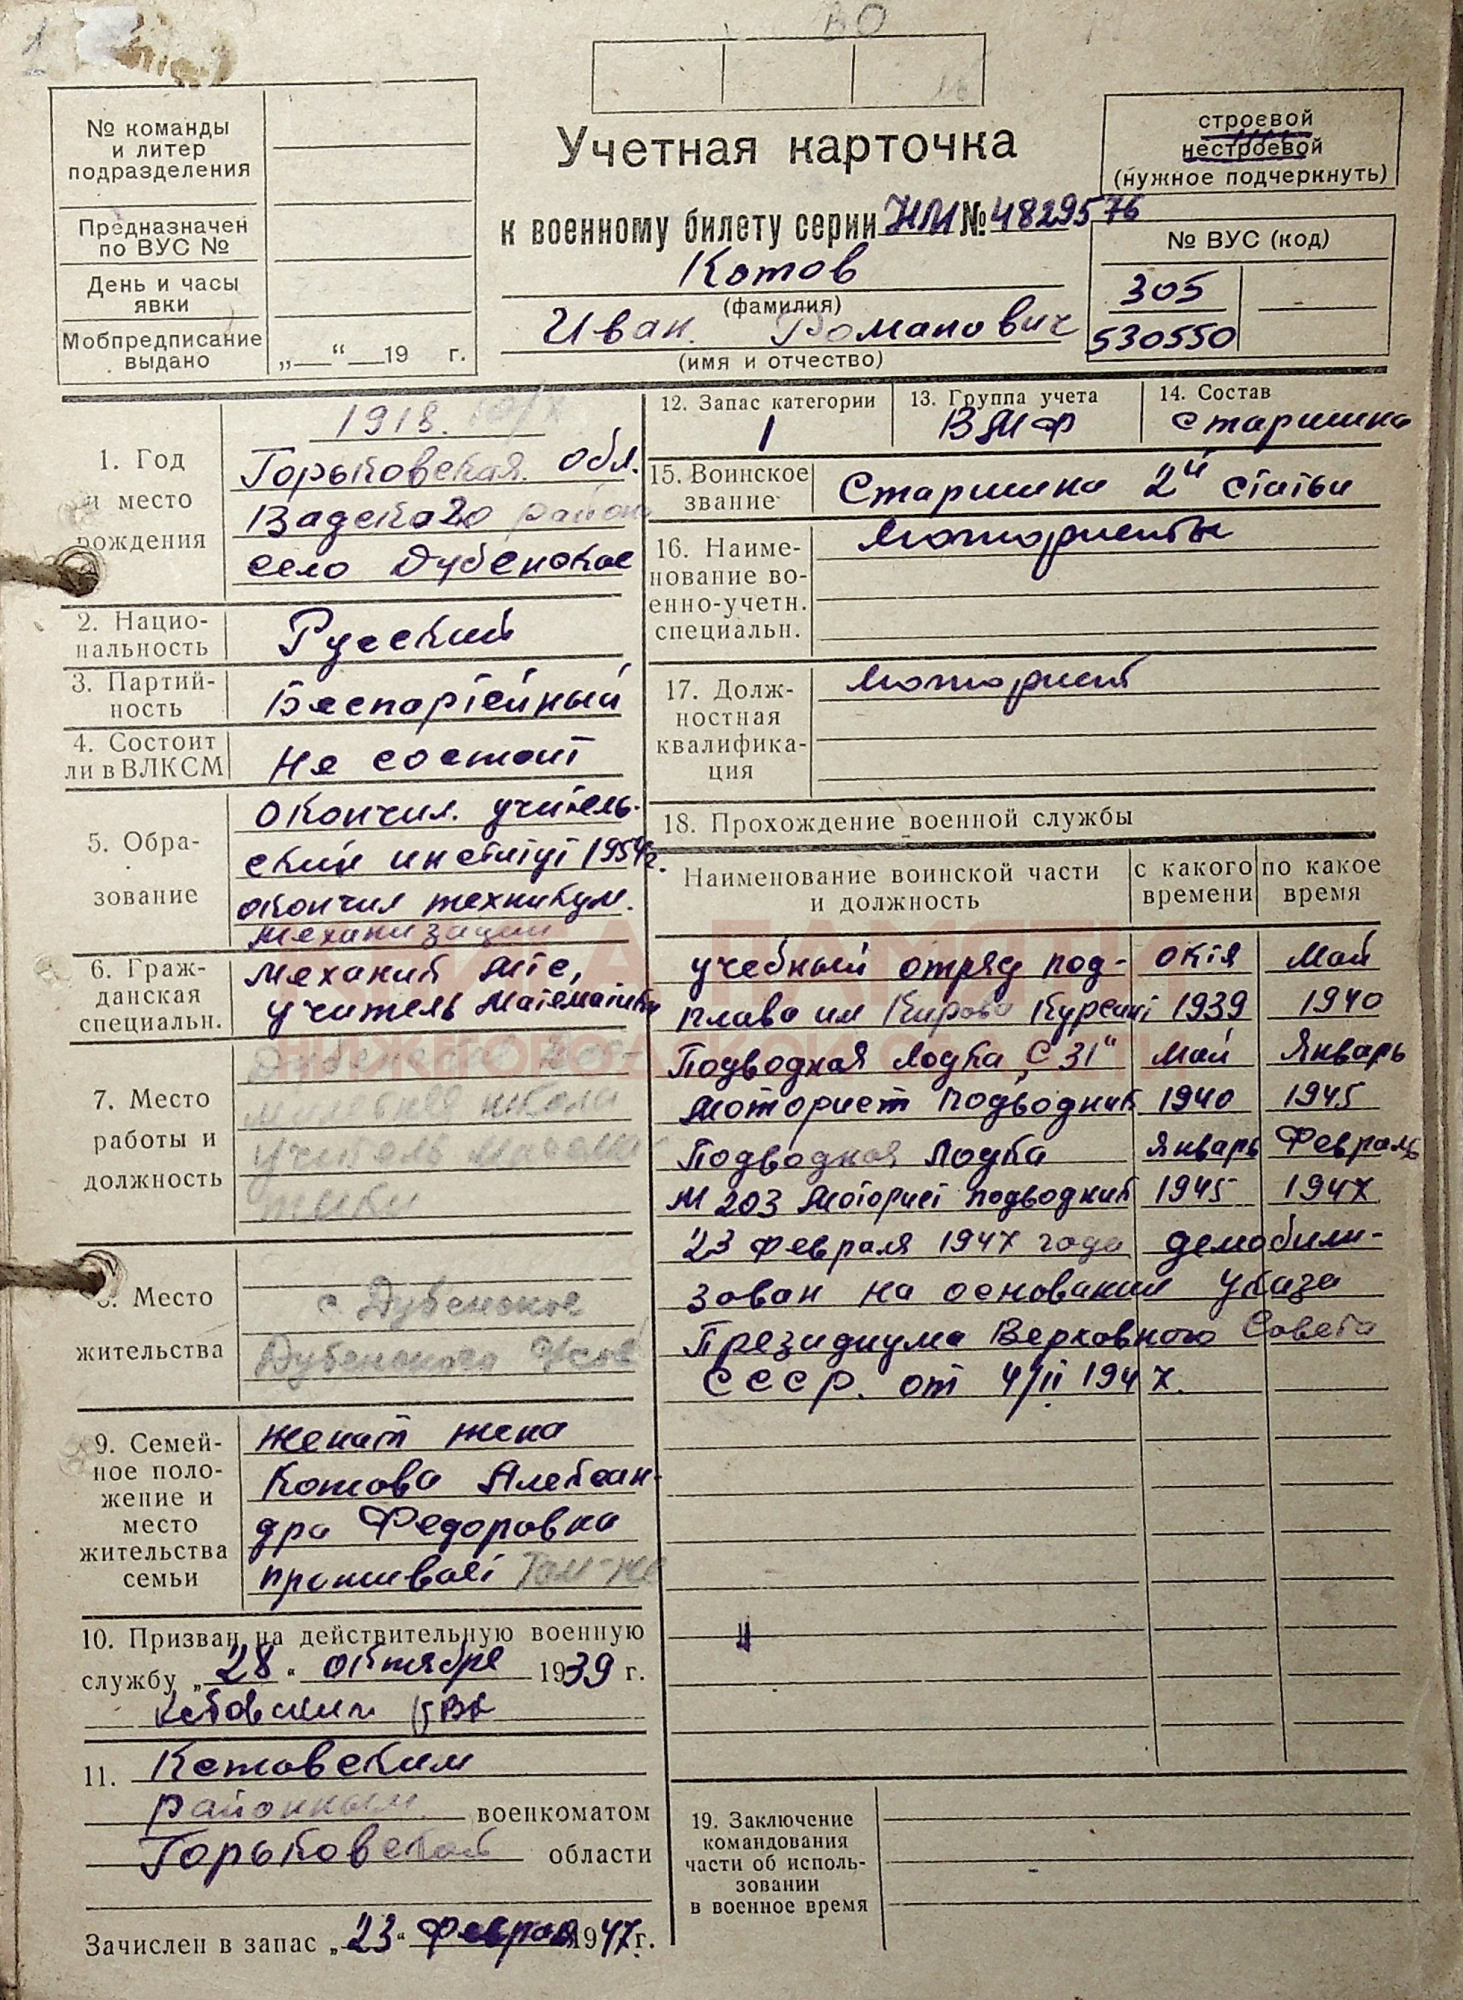 1
ВО
№ команды
и литер
подразделения
Предназначен
по ВУС №
День и часы
явки
Мобпредписание
выдано
„ “ 19 г.
Учетная карточка
к военному билету серии НМ № 4829576
Котов
(фамилия)
Иван Романович
(имя и отчество)
строевой
нестроевой
(нужное подчеркнуть)
№ ВУС (код)
305
530550
1. Год
и место
рождения
1918. 10/X
Горьковская обл.
Вадского район
село Дубенское
2. Нацио-
нальность
Русский
3. Партий-
ность
Беспартейный
4. Состоит
ли в ВЛКСМ
Не состоит
5. Обра-
зование
окончил учитель-
ский институт 1954г.
окончил техникум.
механизации
6. Граж-
данская
специальн.
механик мтс,
учитель математики
7. Место
работы и
должность
Дубенская
школа
учитель матема
тики
8. Место
жительства
с. Дубенское
Дубенского
9. Семей-
ное поло-
жение и
место
жительства
семьи
женат жена
Котова Алексан-
дра Федоровна
проживает там-же
10. Призван на действительную военную
службу „28“ октября 1939 г.
РВК
11. Кстовским
районным военкоматом
Горьковской области
Зачислен в запас „23“ февраля 1947 г.
12. Запас категории
1
13. Группа учета
ВМФ
14. Состав
старшина
15. Воинское
звание
Старшина 2й статьи
16. Наиме-
нование во-
енно-учетн.
специальн.
мотористы
17. Долж-
ностная
квалифика-
ция
моторист
18. Прохождение военной службы
Наименование воинской части
и должность
с какого
времени
по какое
время
учебный отряд под- октя май
плава им Кирова Курсант 1939 1940
Подводная лодка „С 31“ май Январь
моторист подводник 1940 1945
Подводная лодка январь Февраль
М 203 моторист подводник 1945 1947
23 февраля 1947 года демобили-
зован на основании указа
Президиума Верховного Совета
СССР. от 4/II 1947.
19. Заключение
командования
части об исполь-
зовании
в военное время
КНИГА ПАМЯТИ
НИЖЕГОРОДСКОЙ ОБЛАСТИ